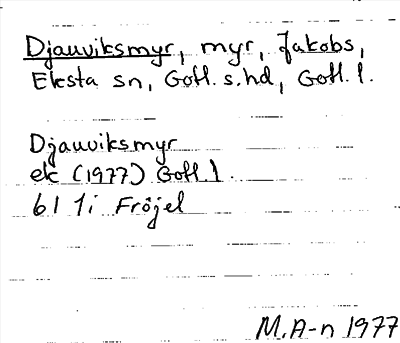 Djauviksmyr, myr, Jakobs,
Eksta sn, Gotl. s. hd, Gotl. l.
Djauviksmyr
ek (1977) Gotl. l.
6I 1i Fröjel
M.A-n 1977